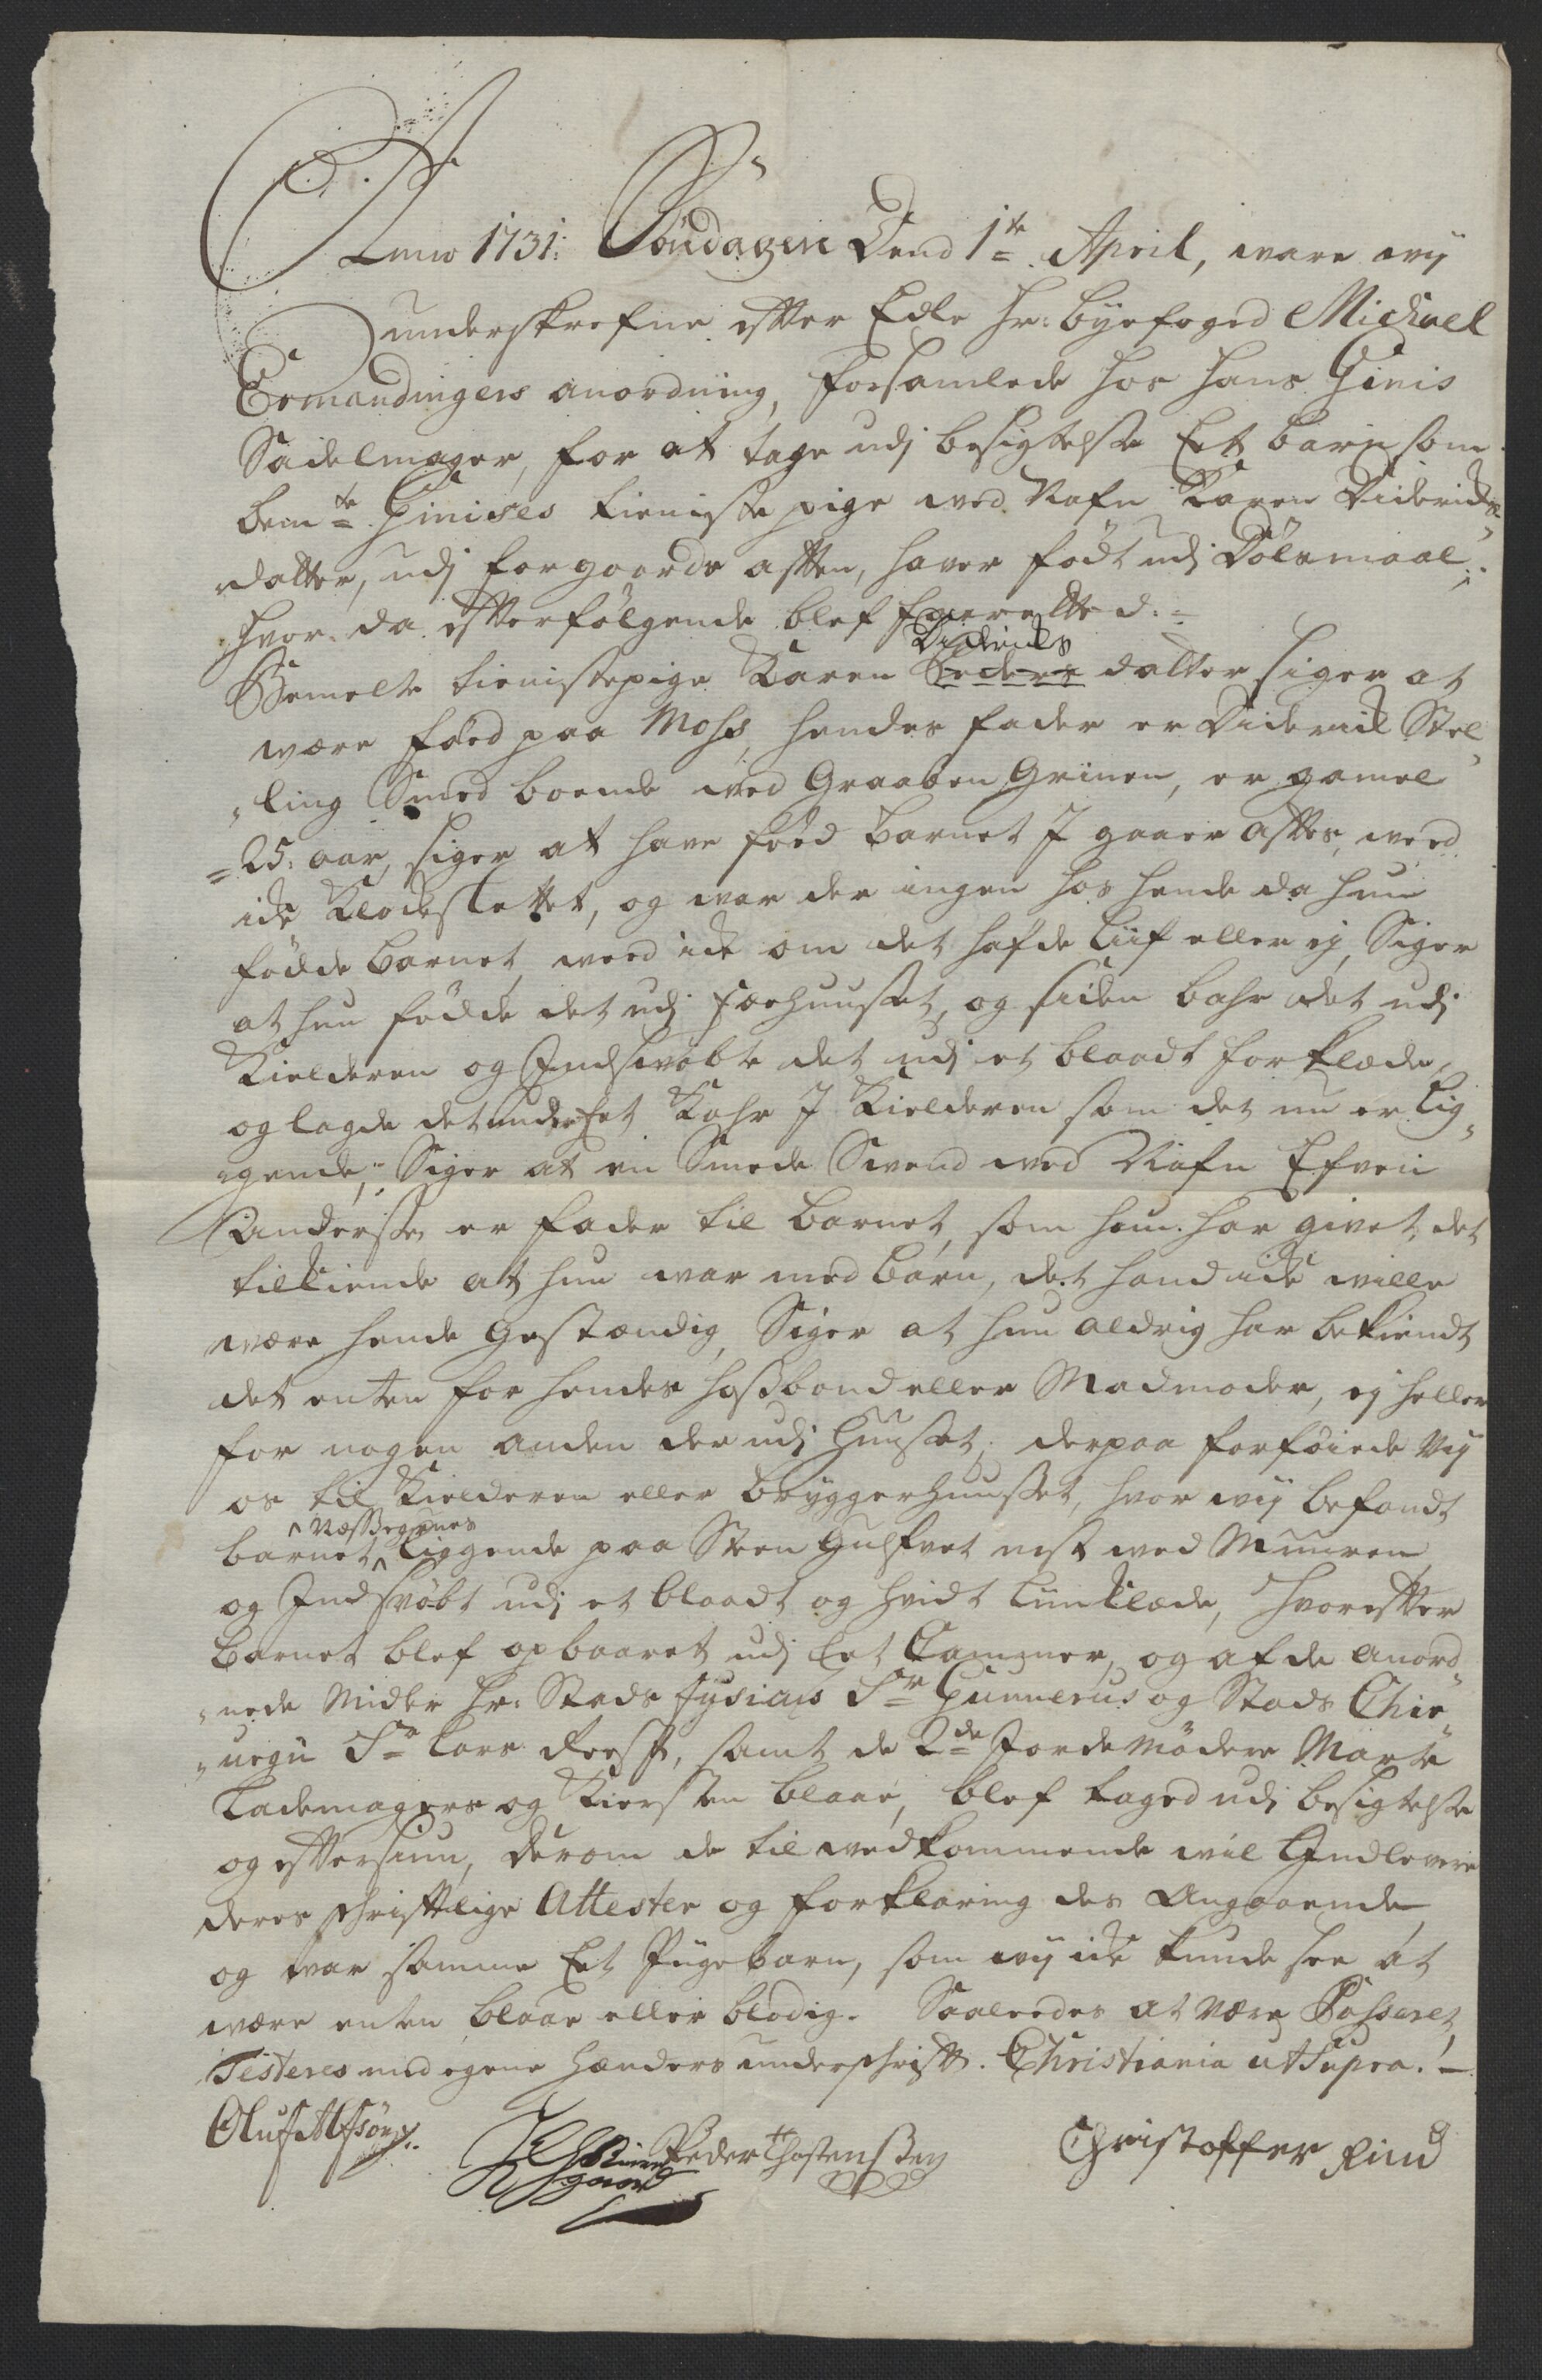 Anno 1731: Söndagen Dend 1te April, ware wij
underskrefne efter Edle Hr: byefoged Michael
Ermandingers anordning, forsamlede hos Hans Ginis
Sadelmager, for at tage udj besigtelse Eet barn som
bemte Ginises tieniste pige wed Nafn Karen Diderichs
datter, udj forgaards aften, hawer födt udj Dölsmaal;
hvor da efterfölgende blef forretted.
Bemelte tienistepige Karen Diderichs datter siger at
wære föed paa Moss, hendes fader er Diderich Stel
ling Smed boende wed Graaben Grinen, er gamel
25: aar, siger at have föed barnet J gaaer aftes, weed
icke Klockeslettet, og war der ingen hos hende da hun
födde barnet, weed icke om det hafde Liif eller ej, Siger
at hun födde det udj Forhuuset, og siden bahr det udj
Kielderen og Indswöbte det udj et blaadt forklæde,
og lagde det under Eet Kahr J Kielderen som det nu er lig
gende; Siger at en Smede Swend wed Nafn Efven
Andersen er fader til barnet, som hun har givet det
tilkiende at hun war med barn, det hand icke wille
wære hende Gestændig, Siger at hun aldrig har bekiendt
det enten for hendes hosbond eller Madmoder, ej heller
for nogen anden der udj Huuset; derpaa forföiede Wij
os til Kielderen eller bryggerhuuset, hvor wij befandt
barnet liggende paa Steen Gulfvet nest wed Muuren
og Indswöbt udj et blaadt og hvidt Liinklæde, hvorefter
barnet blef opbaaret udj Eet Kammer, og af de anord
nede Midler Hr: Stads fysicus Sr Gunnerus og Stads Chir
urgu Sr Lars , samt de 2de Jordemödere Marte
Lademagers og Kiersten blaae, blef taged udj besigtelse
og eftersiun, derom de til wedkommende wil Indlevere
deres schriftlige Attester og forklaring des Angaaende
og war samme Eet Pigebarn, som wij icke kunde see at
wære enten blaae eller blodig. Saaleedes at være Passeret,
Testeres med egene hænders underschrift. Christiania ut Supra.
Oluf Alfsön Peder Thostenssen Christoffer Rind